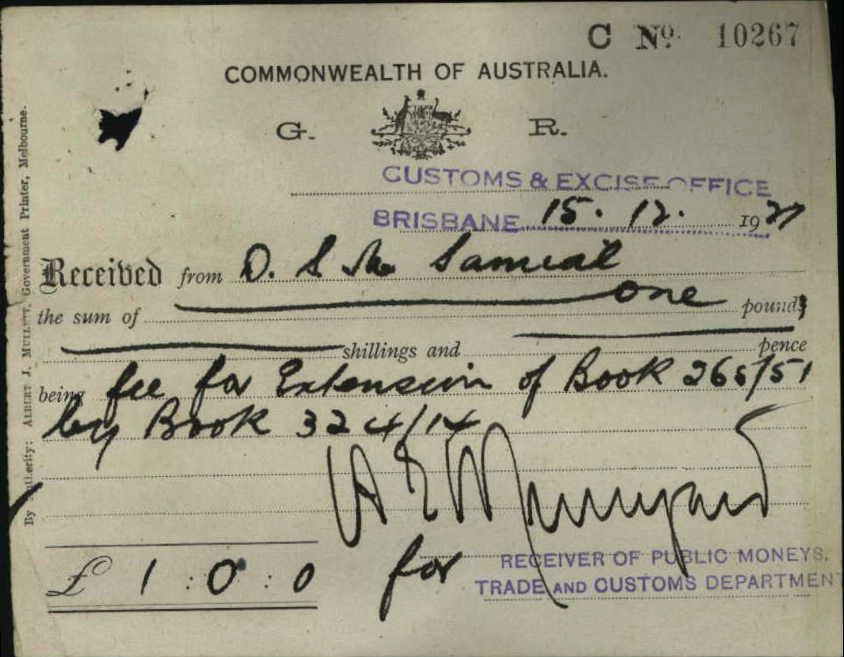 C No. 10267
COMMONWEALTH OF AUSTRALIA.
G. R.
CUSTOMS & EXCISE OFFICE
BRISBANE 15. 12. 1921
Received from D. S.
the sum of one pound
shillings and pence
being fee for Extension of Book 265/51
by Book 324/14
£ 1 : 0 : 0
for RECEIVER OF PUBLIC MONEYS.
TRADE AND CUSTOMS DEPARTMENT
By Authority: ALBERT J. MULLETT, Government Printer, Melbourne.